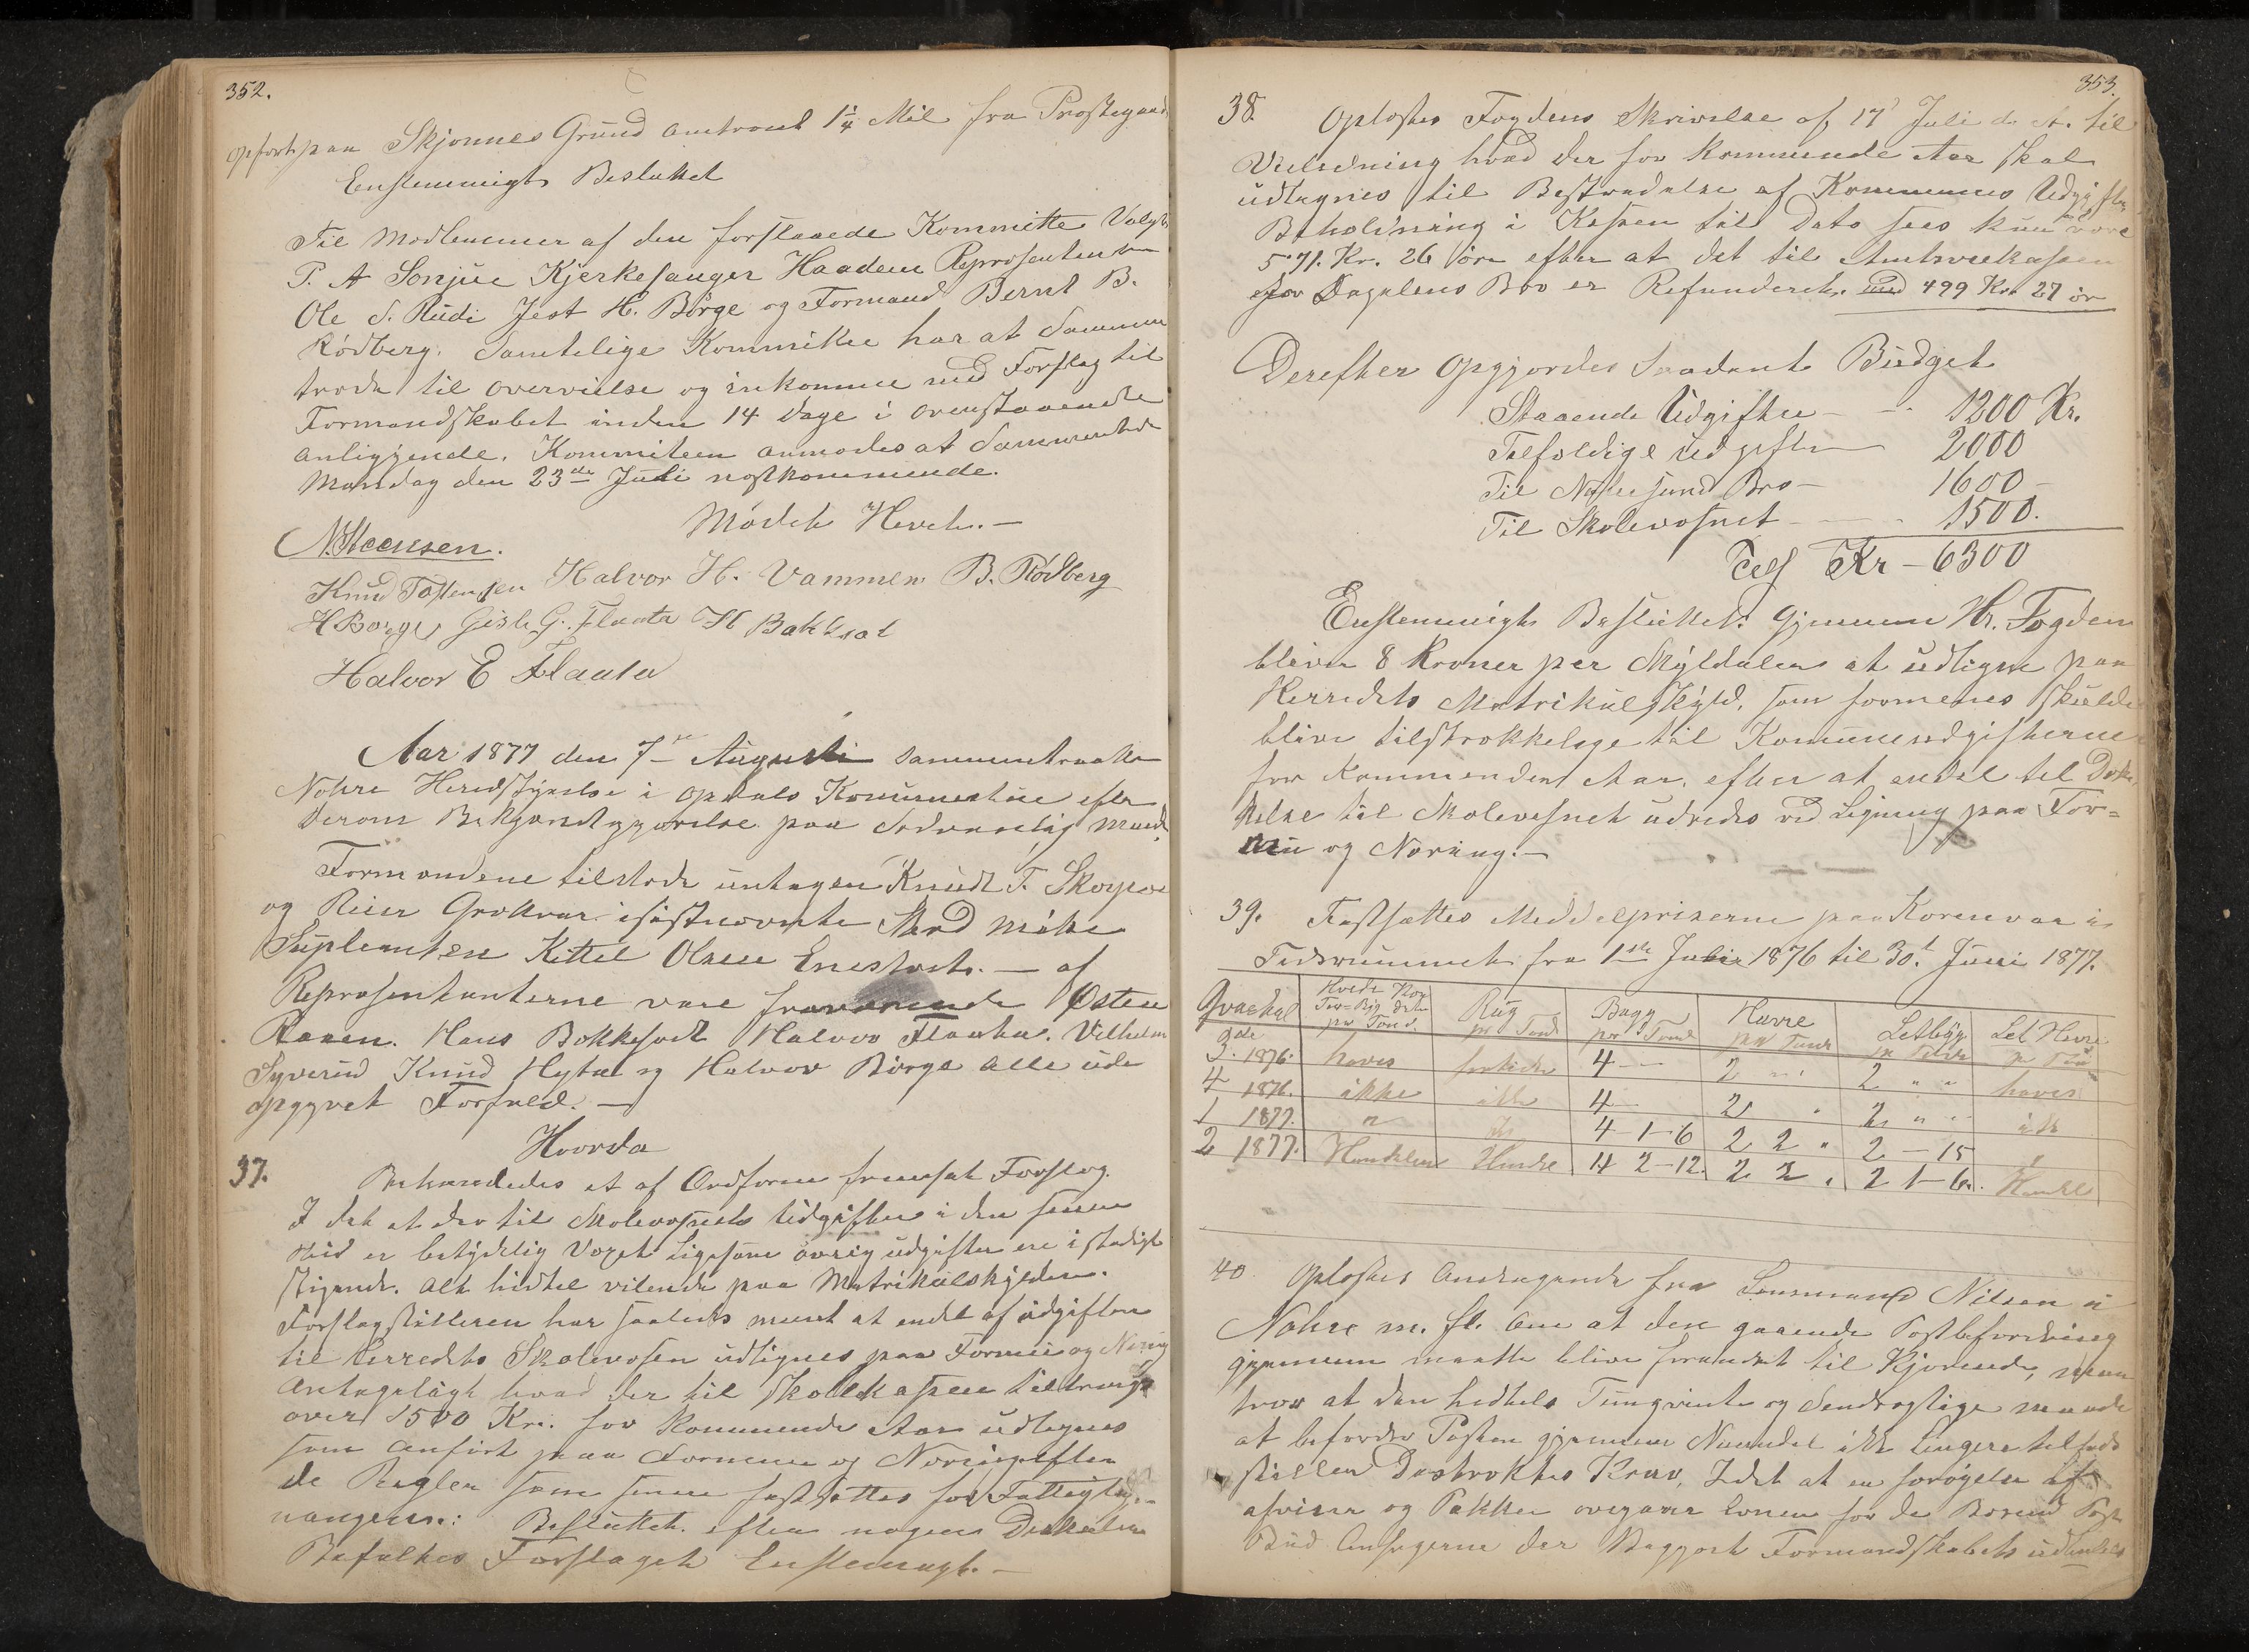 352.
opført paa Skjønnes Grund omtrent 1¼ Mil fra Prestegaard
Enstemmigt Besluttet
Til Medlemmer af den forstaaede Kommitte Valgt
P. A Sønjue Kjerkesanger Haadem Representen
Ole S. Rudi Jest H. Børge og Formand Bernt B.
Rödberg. Samtelige Kommitee har at Sammen
træde til overveielse og inkomme med Forslag til
Formandskabet inden 14 Dage i ovenstaaende
anliggende. Kommiteen anmodes at Sammentræde
Mandag den 23de Juli nestkommende.
Mödet Hevet. —
N. Steensen.
Knud Tostensen Halvor H. Vammen B. Rödberg
H Borge Gisle G. Flaata H Bakksat
Halvor E Flaata
Aar 1877 den 7de Augusti sammentraadte
Nohre Heredstyrelse i Opdals Komunestue efter
derom Bekjendtgjørelse paa Sedvanelig Maade
Formændene tilstede untagen Knudt T. Skorpe
og Reier Grøtten i sistnevnte Sted møtte
Suplenten Kittel Olsen Enestvet. — af
Repræsentanterne vare fraværende Østen
Raaen. Hans Bokkesat Halvor Flaata. Vilhelm
Syverud Knud Hytte og Halvor Börge alle uden
opgyvet Forfald. —
Hvorda
37. Behandledes et af Ordføren fremsat Forslag.
I det at der til Skolevæsnets Udgifter i den senere
tid er betydelig Voxet Ligesom øvrig udgifter ere i stadigt
stigende. Alt hidtil vilende paa Matrikulskylden.
Forslagstilleren har saaledes ment at endel af udgifter
til Herredets Skolevæsen udlignes paa Formue og Næring
Antageligt hvad der til Skolekassen tiltrengs
over 1500 Kr. for kommende Aar udlignes
som anfört paa Formue og Næring efter
de Regler som sinere fastsættes for Fattiglig-
nangen: Besluttet. efter nogen Diskution
Bifaltes Forslaget Enstemigt. —
353.
38. Oplæstes Fogdens Skrivelse af 17' Juli d. A. til
Veiledning hvad der for kommende Aar skal
udlignes til Bestridelse af Kommunes Udgifter
Beholdning i Kassen til Dato sees kun være
571. Kr. 26 öre efter at det til Amtsveikassen
for Dagalens Bro er Refunderet. med 499 Kr. 27 ör
Derefter Opgjordes Saadant Budget
Staaende Udgifter — 1200 Kr.
Tilfældige udgifter — 2000
Til Nohresund Bro — 1600 —
Til Skolevæsnet — 1500.
Tils Kr — 6300
Enstemmigt Besluttet: Gjennem Hr. Fogden
bliver 8 Kroner per Skyldaler at udligne paa
Herredets Matrikulskyld, som formenes skulde
blive tilstrækkelige til Komuneudgifterne
for kommenden Aar, efter at endel til Dæk-
kelse til Skolevesnet udredes ved Ligning paa For=
mu og Næring. —
39. Fastsættes Meddelpriserne paa Kornevar i
Tidsrummet fra 1ste Juli 1876 til 30t Juni 1877.
Qvartal
pr Tønd.
Rug pr Tønde
Bygg pr Tønde
Havre pr Tønde
Letbyg pr Tønde
Let Havre
3. 1876. haves 4 — 2 " 2 " "
4 1876. ikke ikke 4 — 2 " 2 " " haves
1 1877. " 4-1-6 2 2 " 2 — 15 ikk
2 1877. Handelen Handel 4 2-12. 2 2 " 2 1-6. Handel
40. Oplæstes Andragende fra Lensmand Nilsen i
Nohre m. fl. Om at den gaaende Postbefordring
gjennem maatte blive forandret til Kjørende, man
tror at den hidtels Tungvinte og Sendrægtige maade
at befordre Posten gjennem Numedal ikke lengere tilfreds
stiller Destrektes Krav, I det at en forøgelse Af
afviser og Pakker overgaar Evnen for de Borend Post
Bud Ansøgerne der Begjert Formandskabets udtalelse